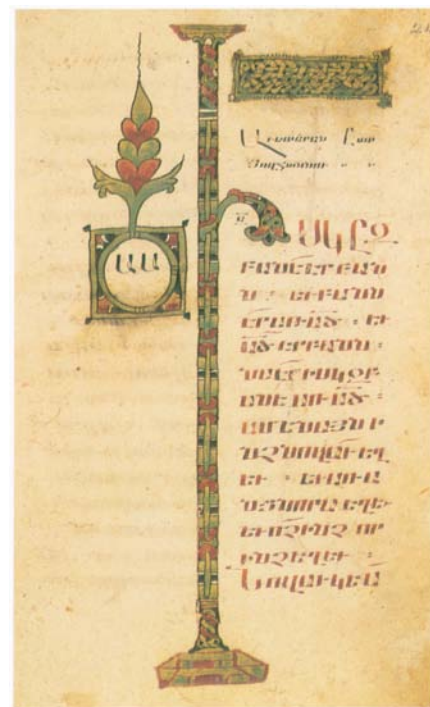 Աւետարան Ըստ
ԱԱ
ՍԿԸԶ
ԲԱՆԷ ԷՐ ԲԱՆ
Ն : ԵՒ ԲԱՆՆ
ԷՐ ԱՌ ԱԾ : ԵՒ
ԱԾ ԷՐ ԲԱՆՆ :
ՆԱ ԷՐ Ի ՍԿԶԲ
ԱՆԷ ԱՌ ԱԾ :
ԱՄԵՆԱՅՆ Ի
ՆՉ ՆՈՎԱՒ ԵՂ
ԵՒ : ԵՒ ԱՌԱ
ՆՑ ՆՈՐԱ ԵՂԵ
ԵՒ ՈՉԻՆՉ ՈՐ
ԻՆՉ ԵՂԵՒ :
ՆՈՎԱՒ ԿԵԱ